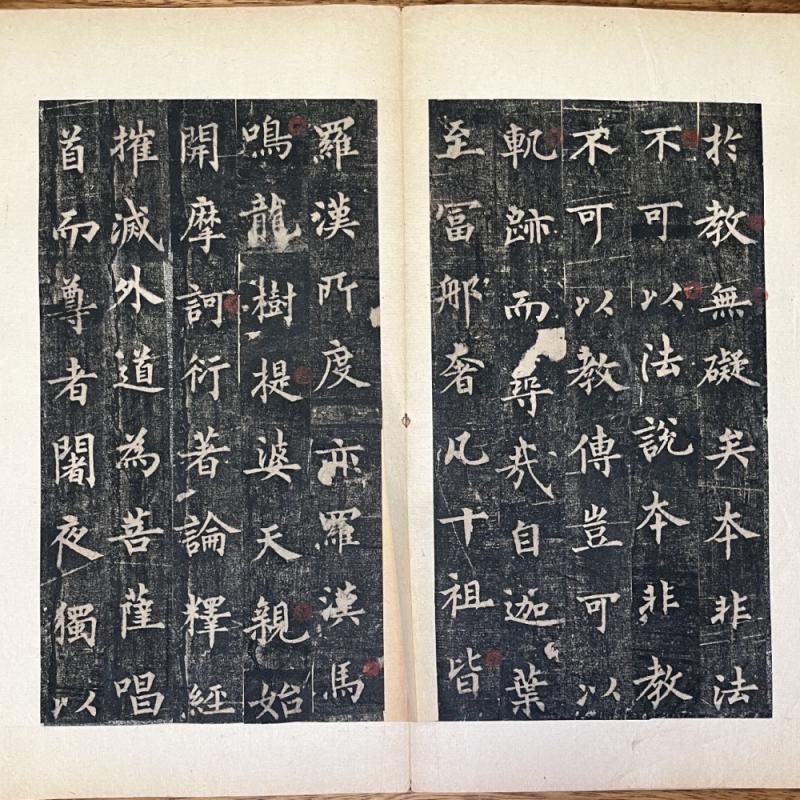 於教無礙矣本非法
不可以法說本非教
不可以教傳豈可以
軌跡而尋哉自迦葉
至冨那奢凡十祖皆
羅漢所度亦羅漢馬
鳴龍樹提婆天親始
開摩訶衍著論釋經
摧滅外道為菩薩唱
首而尊者闍夜獨以